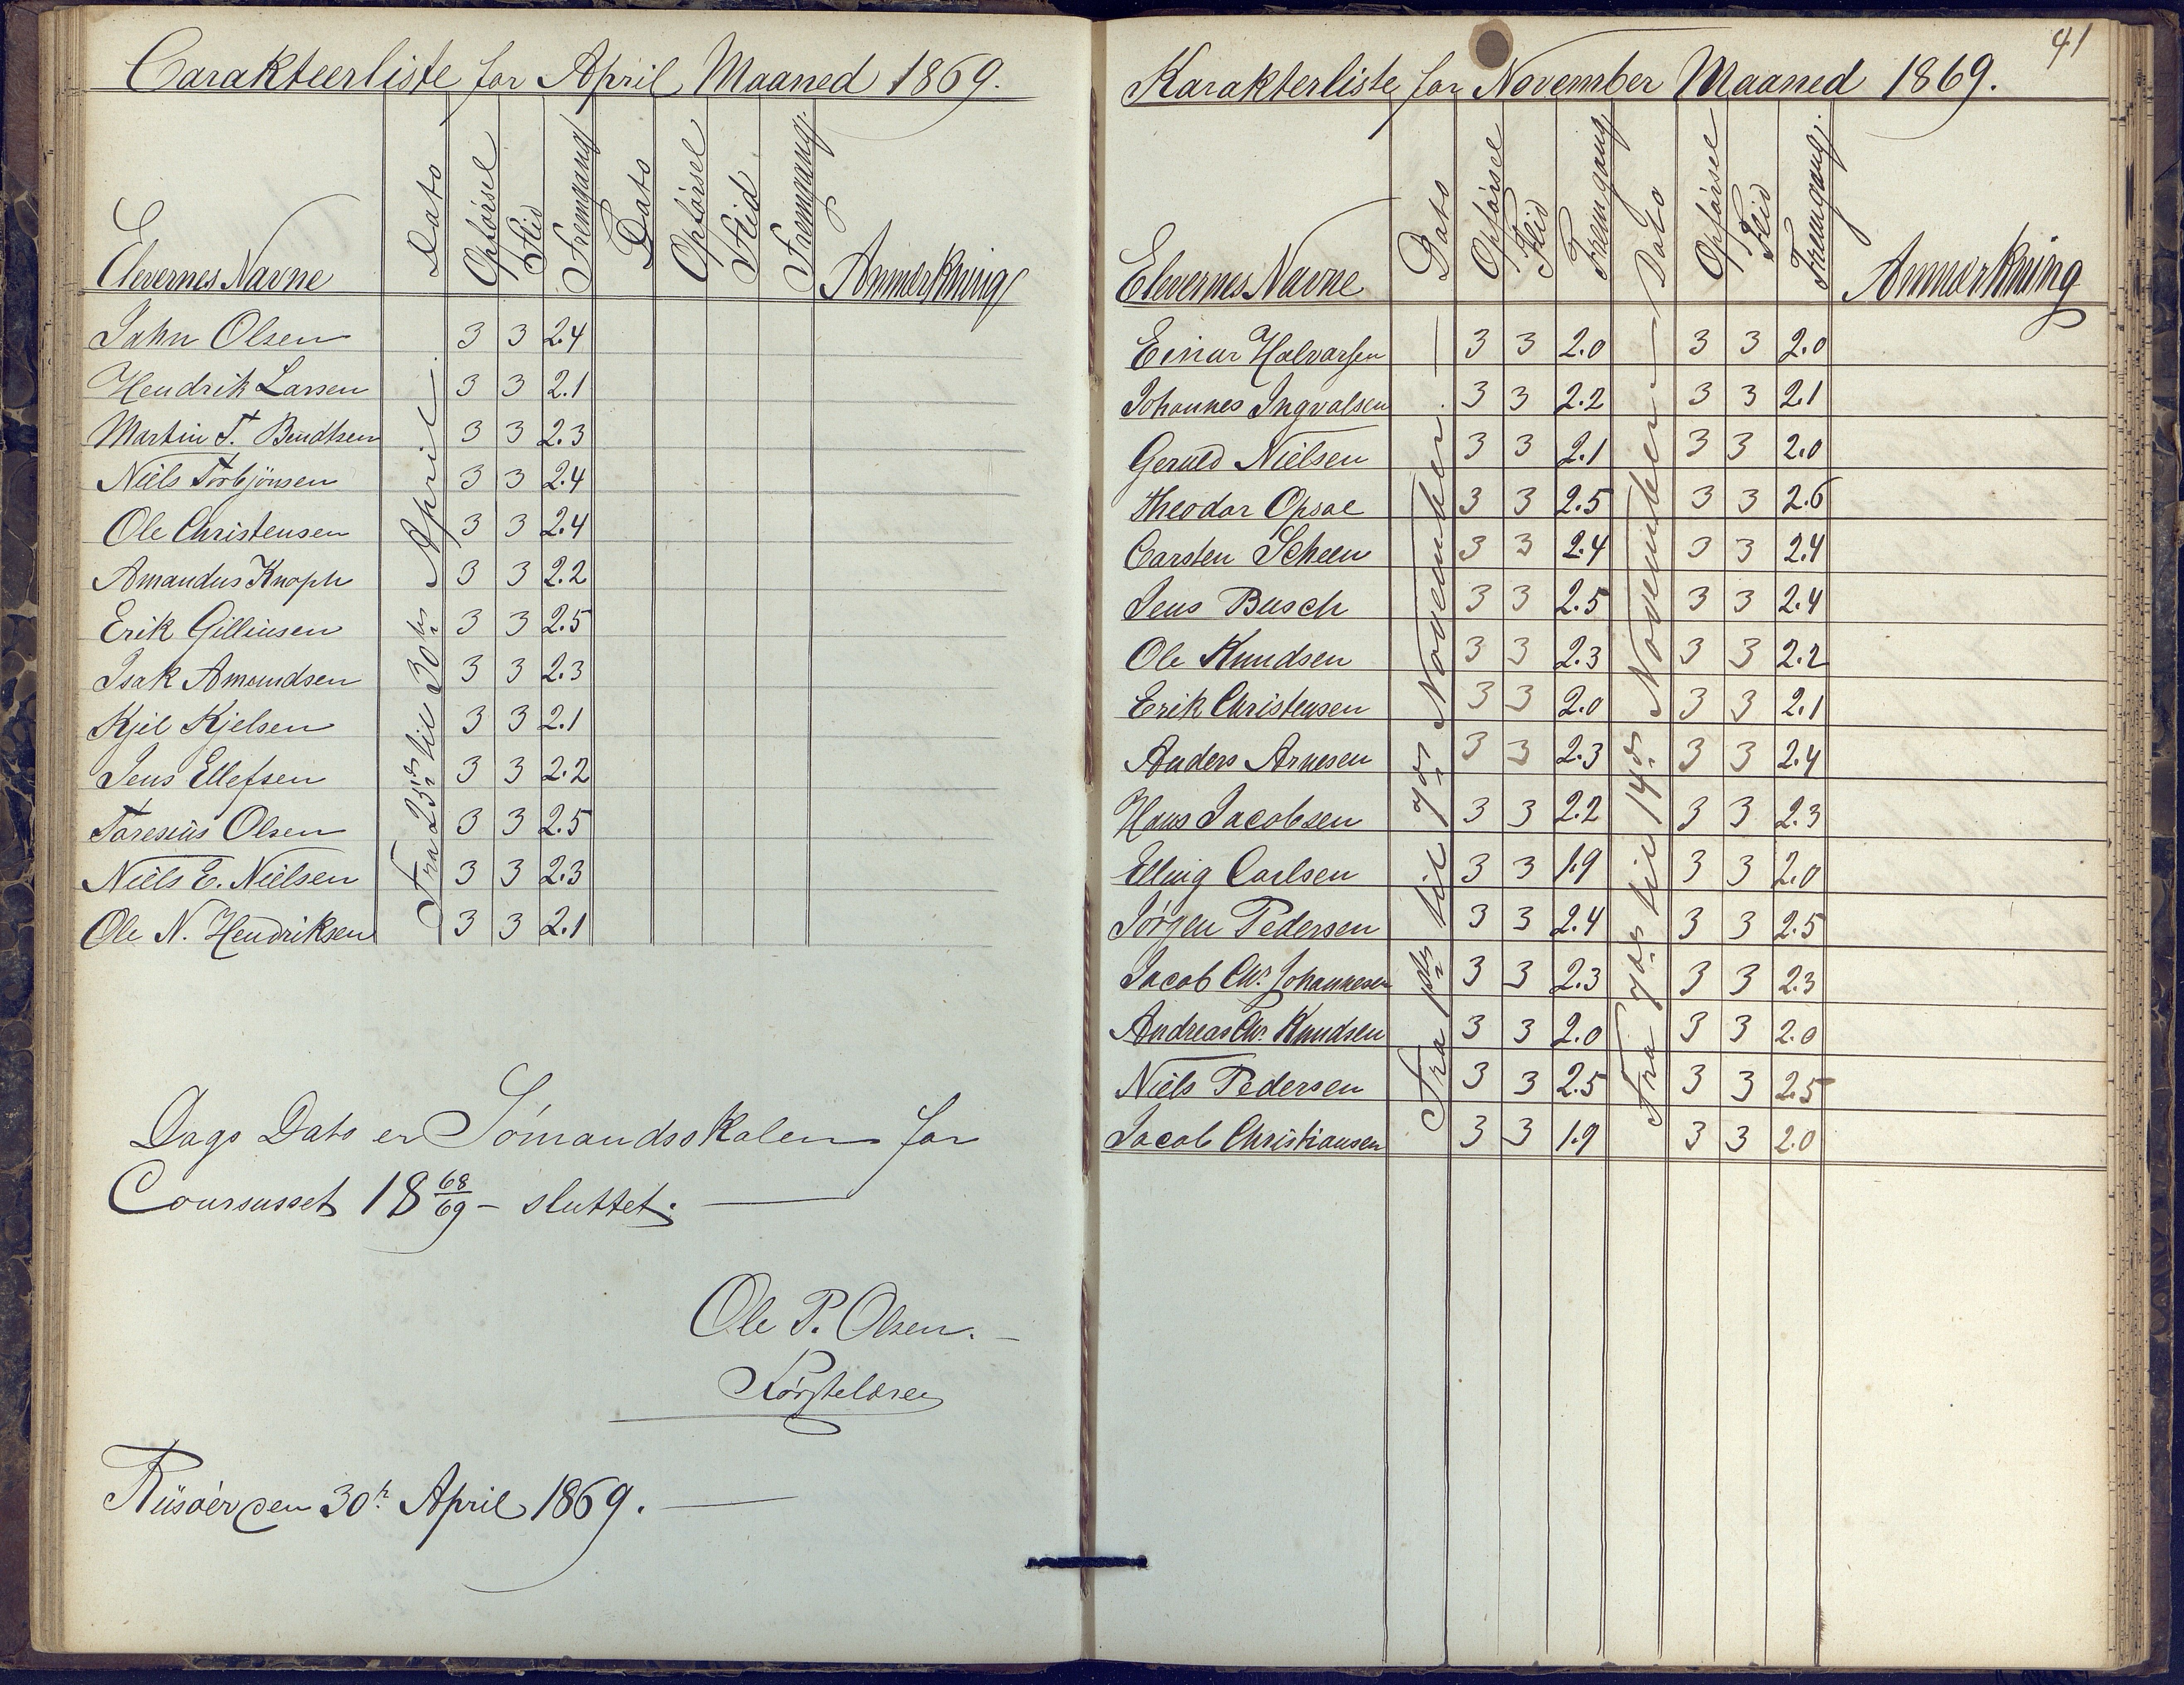 Carakteerliste for April Maaned 1869.
Elevernes Navne Dato Opførsel Flid Fremgang Dato Opførsel Flid Fremgang. Anmærkning
Fra 25de til 30te April
John Olsen 3 3 2.4
Hendrik Larsen 3 3 2.1
Martin T. Bendtsen 3 3 2.3
Niels Torbjönsen 3 3 2.4
Ole Christensen 3 3 2.4
Amandus Knoph 3 3 2.2
Erik Gilliusen 3 3 2.5
Isak Amundsen 3 3 2.3
Kjel Kjelsen 3 3 2.1
Jens Ellefsen 3 3 2.2
Taresius Olsen 3 3 2.5
Niels E. Nielsen 3 3 2.3
Ole N. Hendriksen 3 3 2.1
Dags Dato er Sömandsskolen for
Coursusset 18 68/69 - sluttet.
Ole P. Olsen.
Førstelærer
Riisøer den 30te April 1869.
41
Karakterliste for November Maaned 1869.
Elevernes Navne Dato Opførsel Flid Fremgang Dato Opførsel Flid Fremgang. Anmærkning
Fra 1ste til 7de November
Fra 7de til 14de November
Einar Halvorsen 3 3 2.0 3 3 2.0
Johannes Ingvalsen 3 3 2.2 3 3 2.1
Geruld Nielsen 3 3 2.1 3 3 2.0
Theodor Opsal 3 3 2.5 3 3 2.6
Carsten Scheen 3 3 2.4 3 3 2.4
Jens Busch 3 3 2.5 3 3 2.4
Ole Knudsen 3 3 2.3 3 3 2.2
Erik Christensen 3 3 2.0 3 3 2.1
Anders Arnesen 3 3 2.3 3 3 2.4
Hans Jacobsen 3 3 2.2 3 3 2.3
Elling Carlsen 3 3 1.9 3 3 2.0
Jørgen Pedersen 3 3 2.4 3 3 2.5
Jacob Chr. Johannesen 3 3 2.3 3 3 2.3
Andreas Chr. Knudsen 3 3 2.0 3 3 2.0
Niels Pedersen 3 3 2.5 3 3 2.5
Jacob Christiansen 3 3 1.9 3 3 2.0